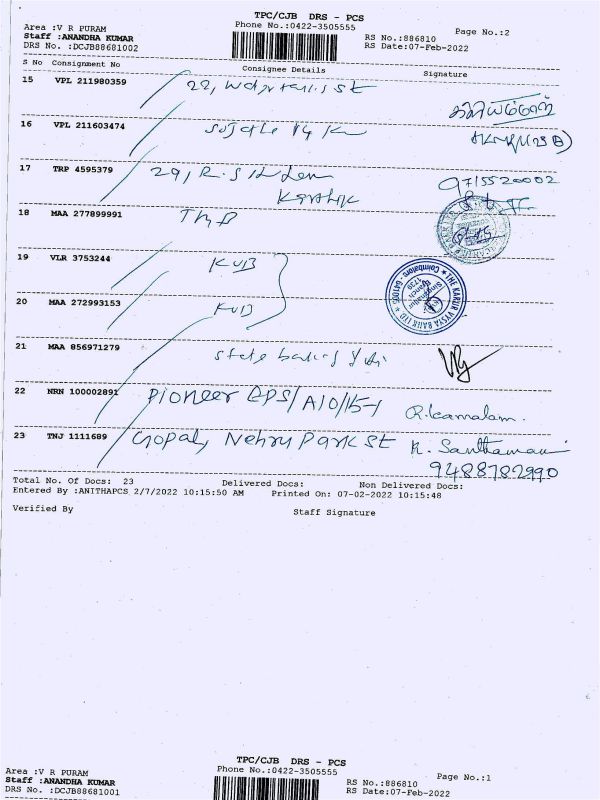 TPC/CJB DRS - PCS
Area :V R PURAM Phone No.:0422-3505555 Page No.:2
Staff :ANANDHA KUMAR RS No.:886810
DRS No. :DCJB88681002 RS Date:07-Feb-2022
S No Consignment No Consignee Details Signature
15 VPL 211980359 22, st
16 VPL 211603474
17 TRP 4595379 29, R.S 9715520002
Karthik
18 MAA 277899991 TMB
19 VLR 3753244 KVB
THE KARUR VYSYA BANK LTD. Coimbatore- 641005
Singanallur Branch 1739
20 MAA 272993153 KVB
21 MAA 856971279 State bank of
22 NRN 100002891 Pioneer R.Kamalam.
23 TNJ 1111689 Gopal, Nehru Park st K. Santhamani
9488782990
Total No. Of Docs: 23 Delivered Docs: Non Delivered Docs:
Entered By :ANITHAPCS 2/7/2022 10:15:50 AM Printed On: 07-02-2022 10:15:48
Verified By Staff Signature
TPC/CJB DRS - PCS
Area :V R PURAM Phone No.:0422-3505555 Page No.:1
Staff :ANANDHA KUMAR RS No.:886810
DRS No. :DCJB88681001 RS Date:07-Feb-2022